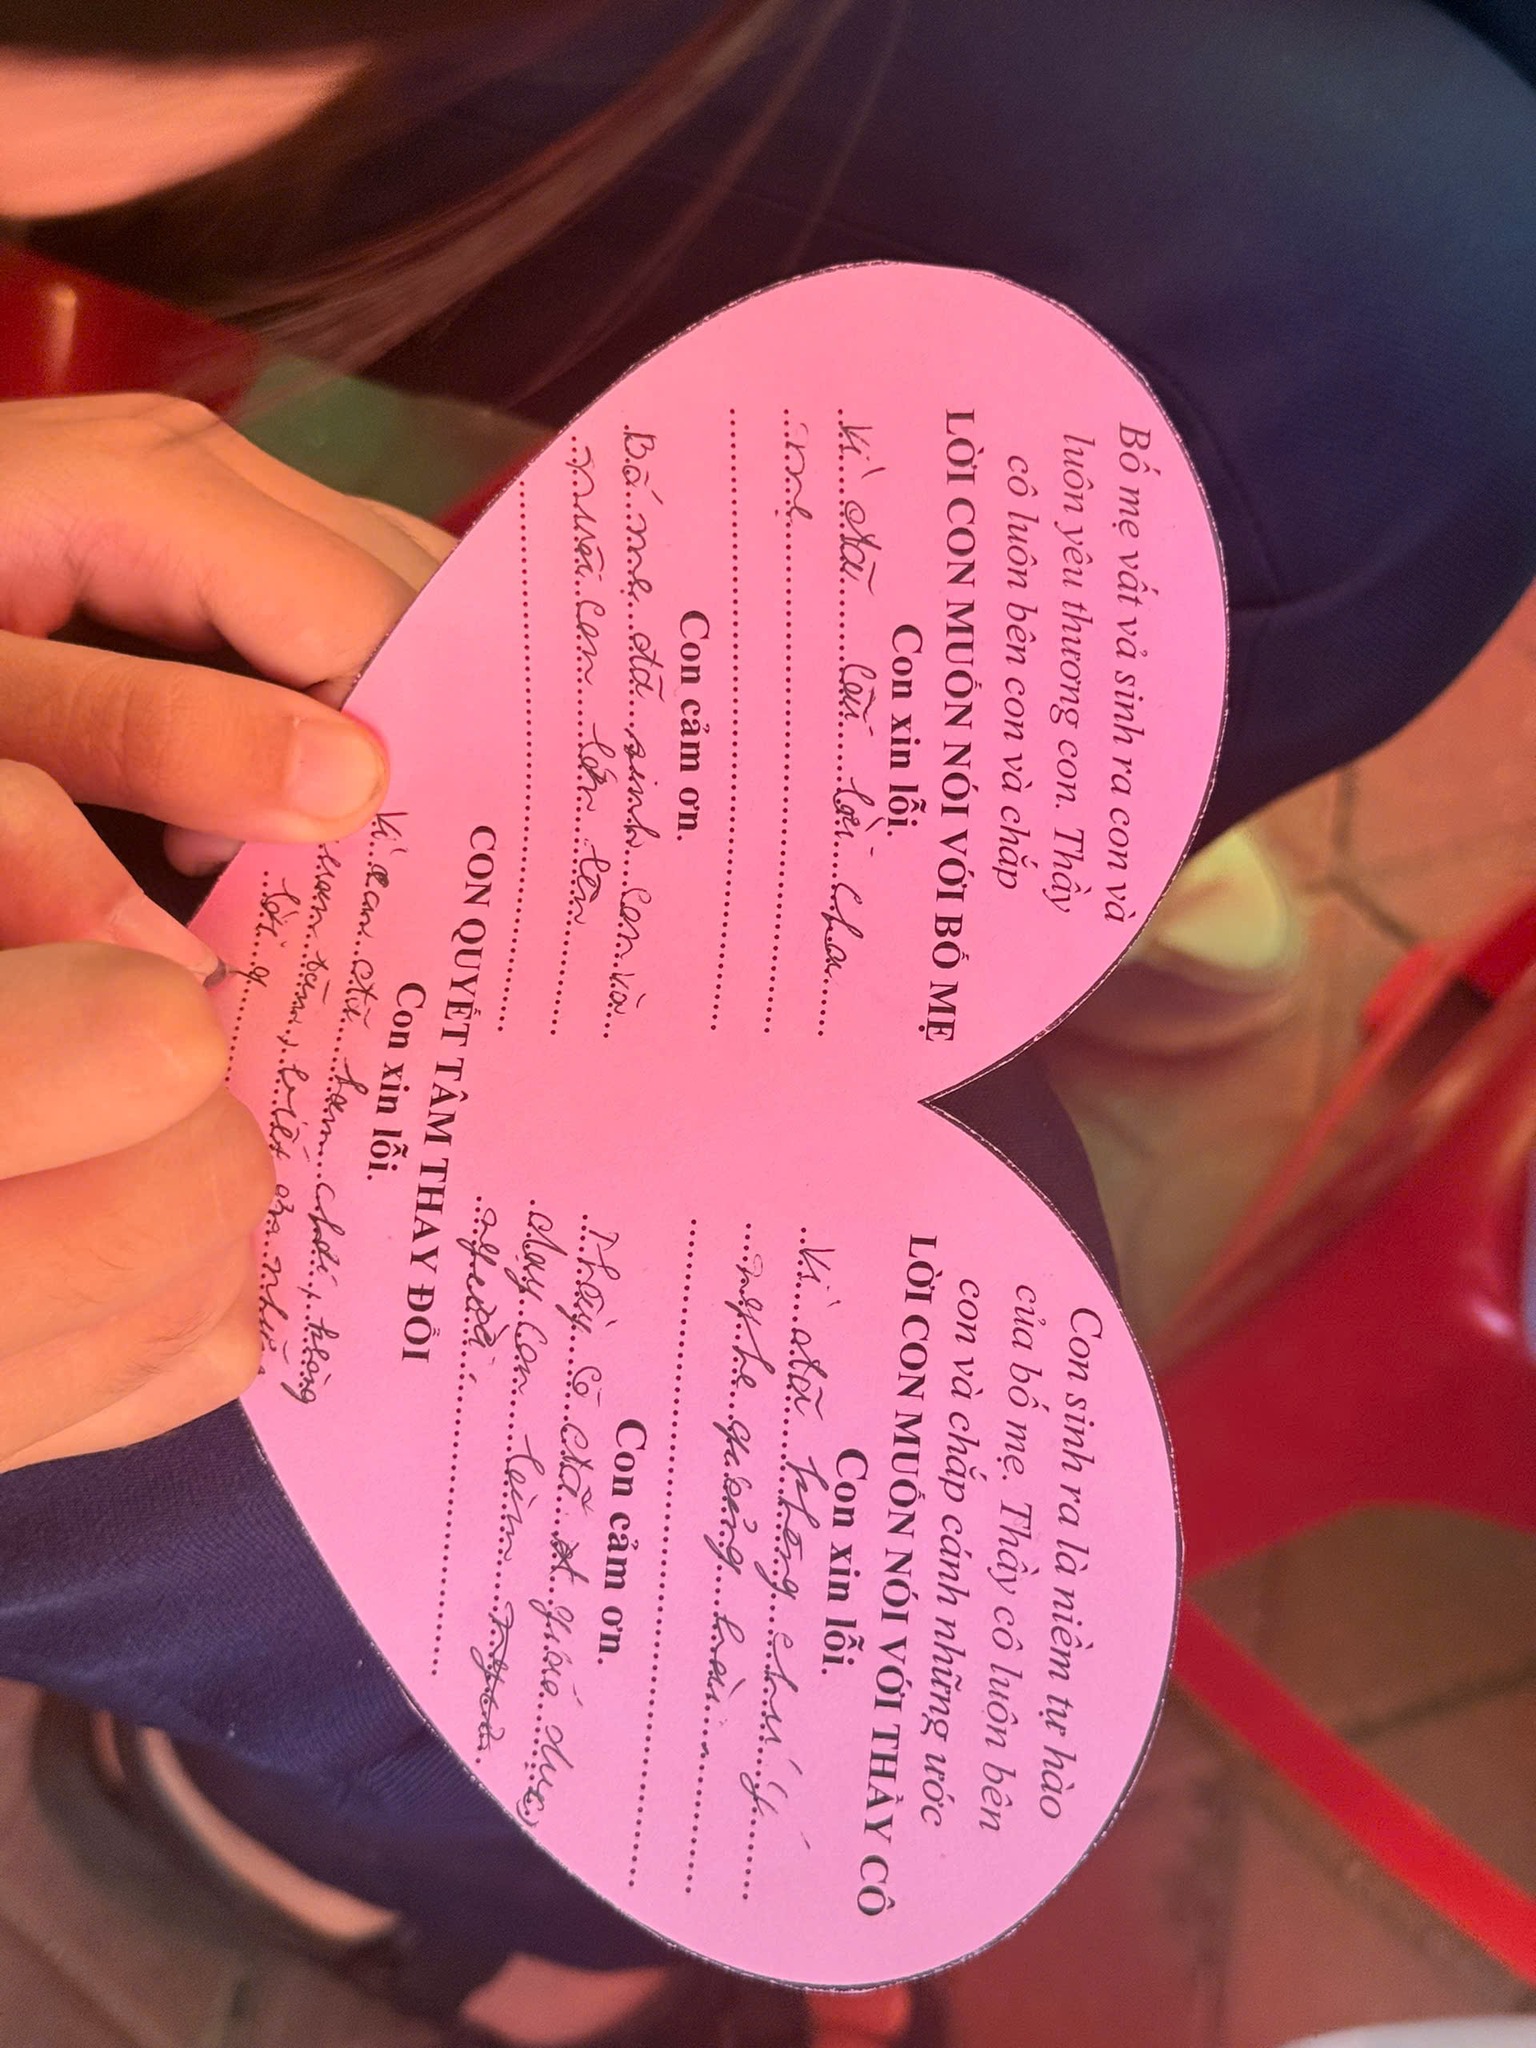 Bố mẹ vất vả sinh ra con và
luôn yêu thương con. Thầy
cô luôn bên con và chắp
LỜI CON MUỐN NÓI VỚI BỐ MẸ
Con xin lỗi.
Vì đã cãi lời cha
mẹ
Con cảm ơn.
Bố mẹ đã sinh con và
nuôi con lớn lên
Con sinh ra là niềm tự hào
của bố mẹ. Thầy cô luôn bên
con và chắp cánh những ước
LỜI CON MUỐN NÓI VỚI THẦY CÔ
Con xin lỗi.
Vì đã không chú ý
nghe giảng bài
Con cảm ơn.
Thầy cô đã giáo dục,
dạy con làm
người
CON QUYẾT TÂM THAY ĐỔI
Con xin lỗi.
Vì con đã ham chơi, không
tâm, biết ơn những